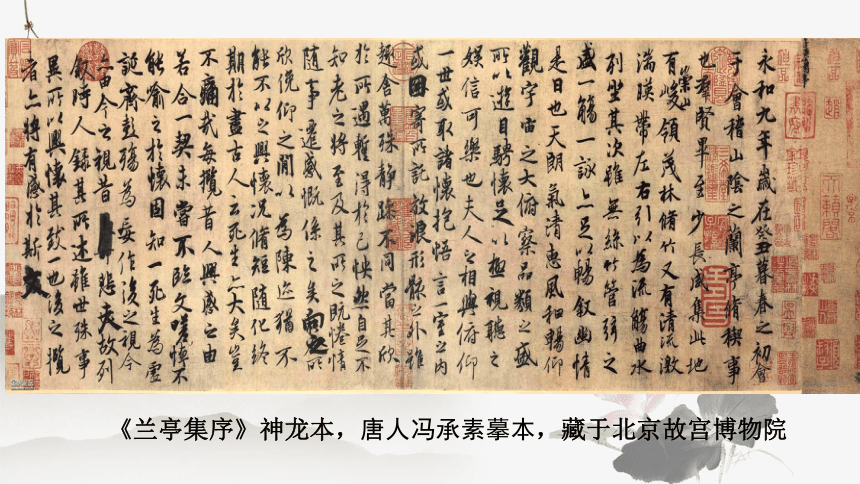 永和九年歲在癸丑暮春之初會
于會稽山陰之蘭亭脩稧事
也群賢畢至少長咸集此地
有崇山峻領茂林脩竹又有清流激
湍暎帶左右引以為流觴曲水
列坐其次雖無絲竹管弦之
盛一觴一詠亦足以暢敘幽情
是日也天朗氣清惠風和暢仰
觀宇宙之大俯察品類之盛
所以遊目騁懷足以極視聽之
娛信可樂也夫人之相與俯仰
一世或取諸懷抱悟言一室之內
或因寄所託放浪形骸之外雖
趣舍萬殊靜躁不同當其欣
於所遇蹔得於己怏然自足不
知老之將至及其所之既惓情
隨事遷感慨係之矣向之所
欣俛仰之閒以為陳迹猶不
能不以之興懷況脩短隨化終
期於盡古人云死生亦大矣豈
不痛哉每攬昔人興感之由
若合一契未嘗不臨文嗟悼不
能喻之於懷固知一死生為虛
誕齊彭殤為妄作後之視今
亦由今之視昔悲夫故列
敘時人錄其所述雖世殊事
異所以興懷其致一也後之攬
者亦將有感於斯文
《兰亭集序》神龙本，唐人冯承素摹本，藏于北京故宫博物院